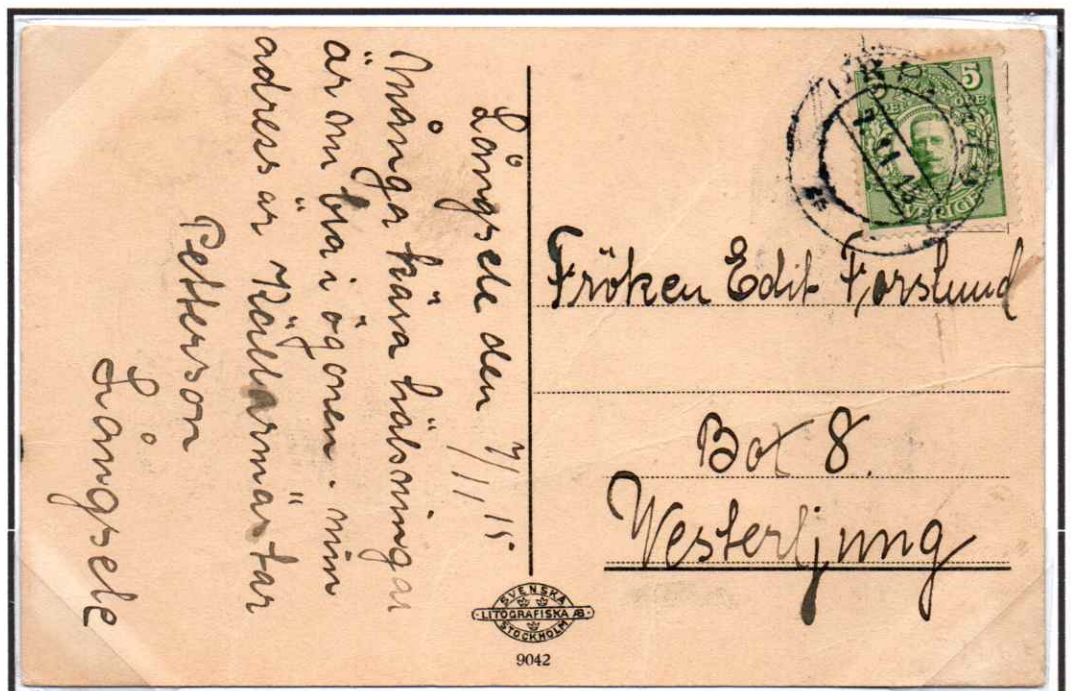 Långsele den 7/11 15
Många kära hälsningar
är om bra i ögonen. min
adress är Källarmästar
Petterson
Långsele
5
ÖRE
SVERIGE
Fröken Edit Forslund
Box 8.
Westerljung
SVENSKA
LITOGRAFISKA AB.
STOCKHOLM
9042